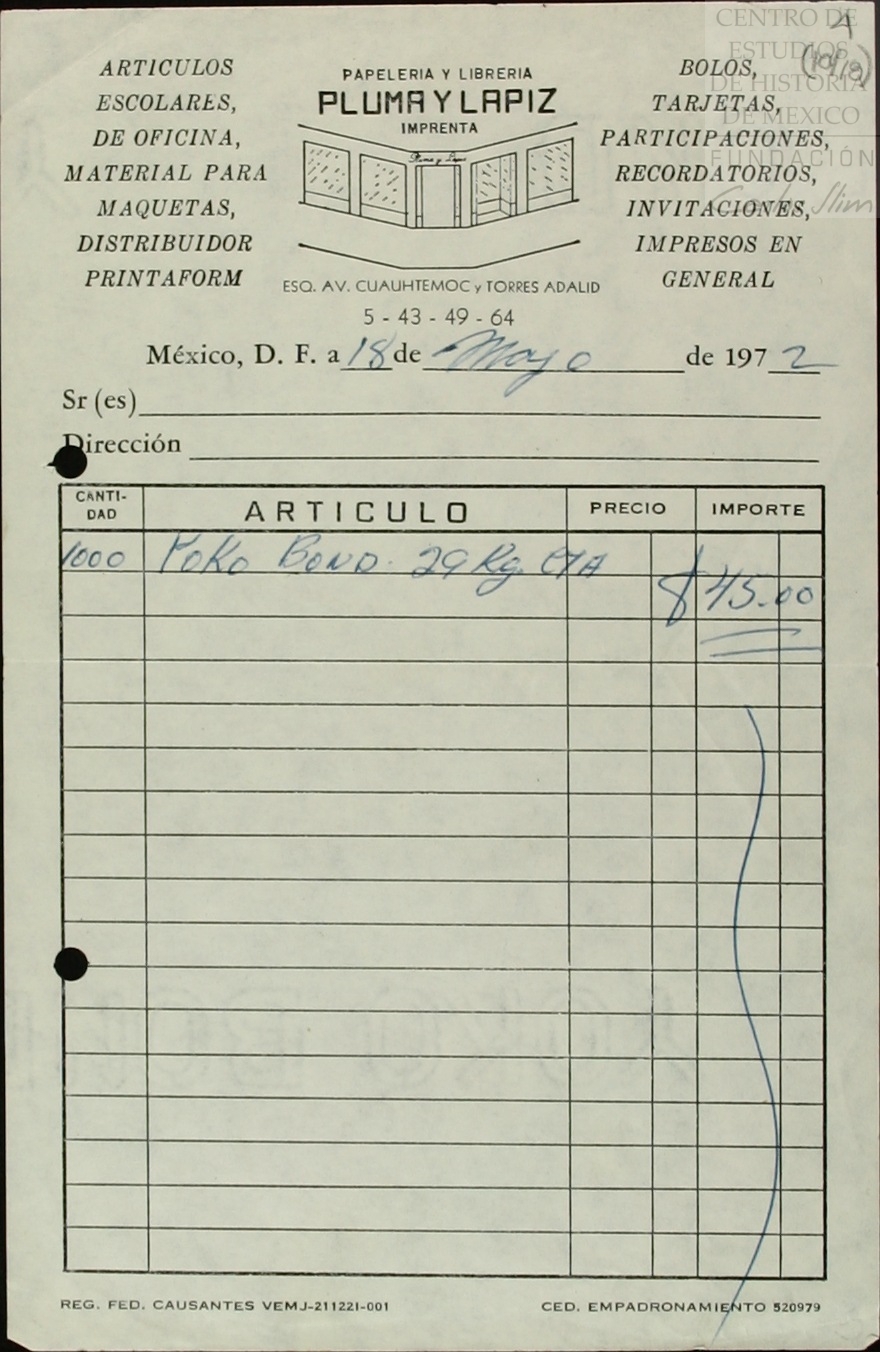 CENTRO DE
ESTUDIOS
DE HISTORIA
DE MEXICO
FUNDACIÓN
Carlos Slim
4
(10/18)
ARTICULOS
ESCOLARES,
DE OFICINA,
MATERIAL PARA
MAQUETAS,
DISTRIBUIDOR
PRINTAFORM
PAPELERIA Y LIBRERIA
PLUMA Y LAPIZ
IMPRENTA
Pluma y Lapiz
ESQ. AV. CUAUHTEMOC y TORRES ADALID
5 - 43 - 49 - 64
BOLOS,
TARJETAS,
PARTICIPACIONES,
RECORDATORIOS,
INVITACIONES,
IMPRESOS EN
GENERAL
México, D. F. a 18 de Mayo de 1972
Sr (es)
Dirección
CANTI-
DAD ARTICULO PRECIO IMPORTE
1000 YoKo Bond 29 Kg. CTA
$45.00
REG. FED. CAUSANTES VEMJ-211221-001 CED. EMPADRONAMIENTO 520979